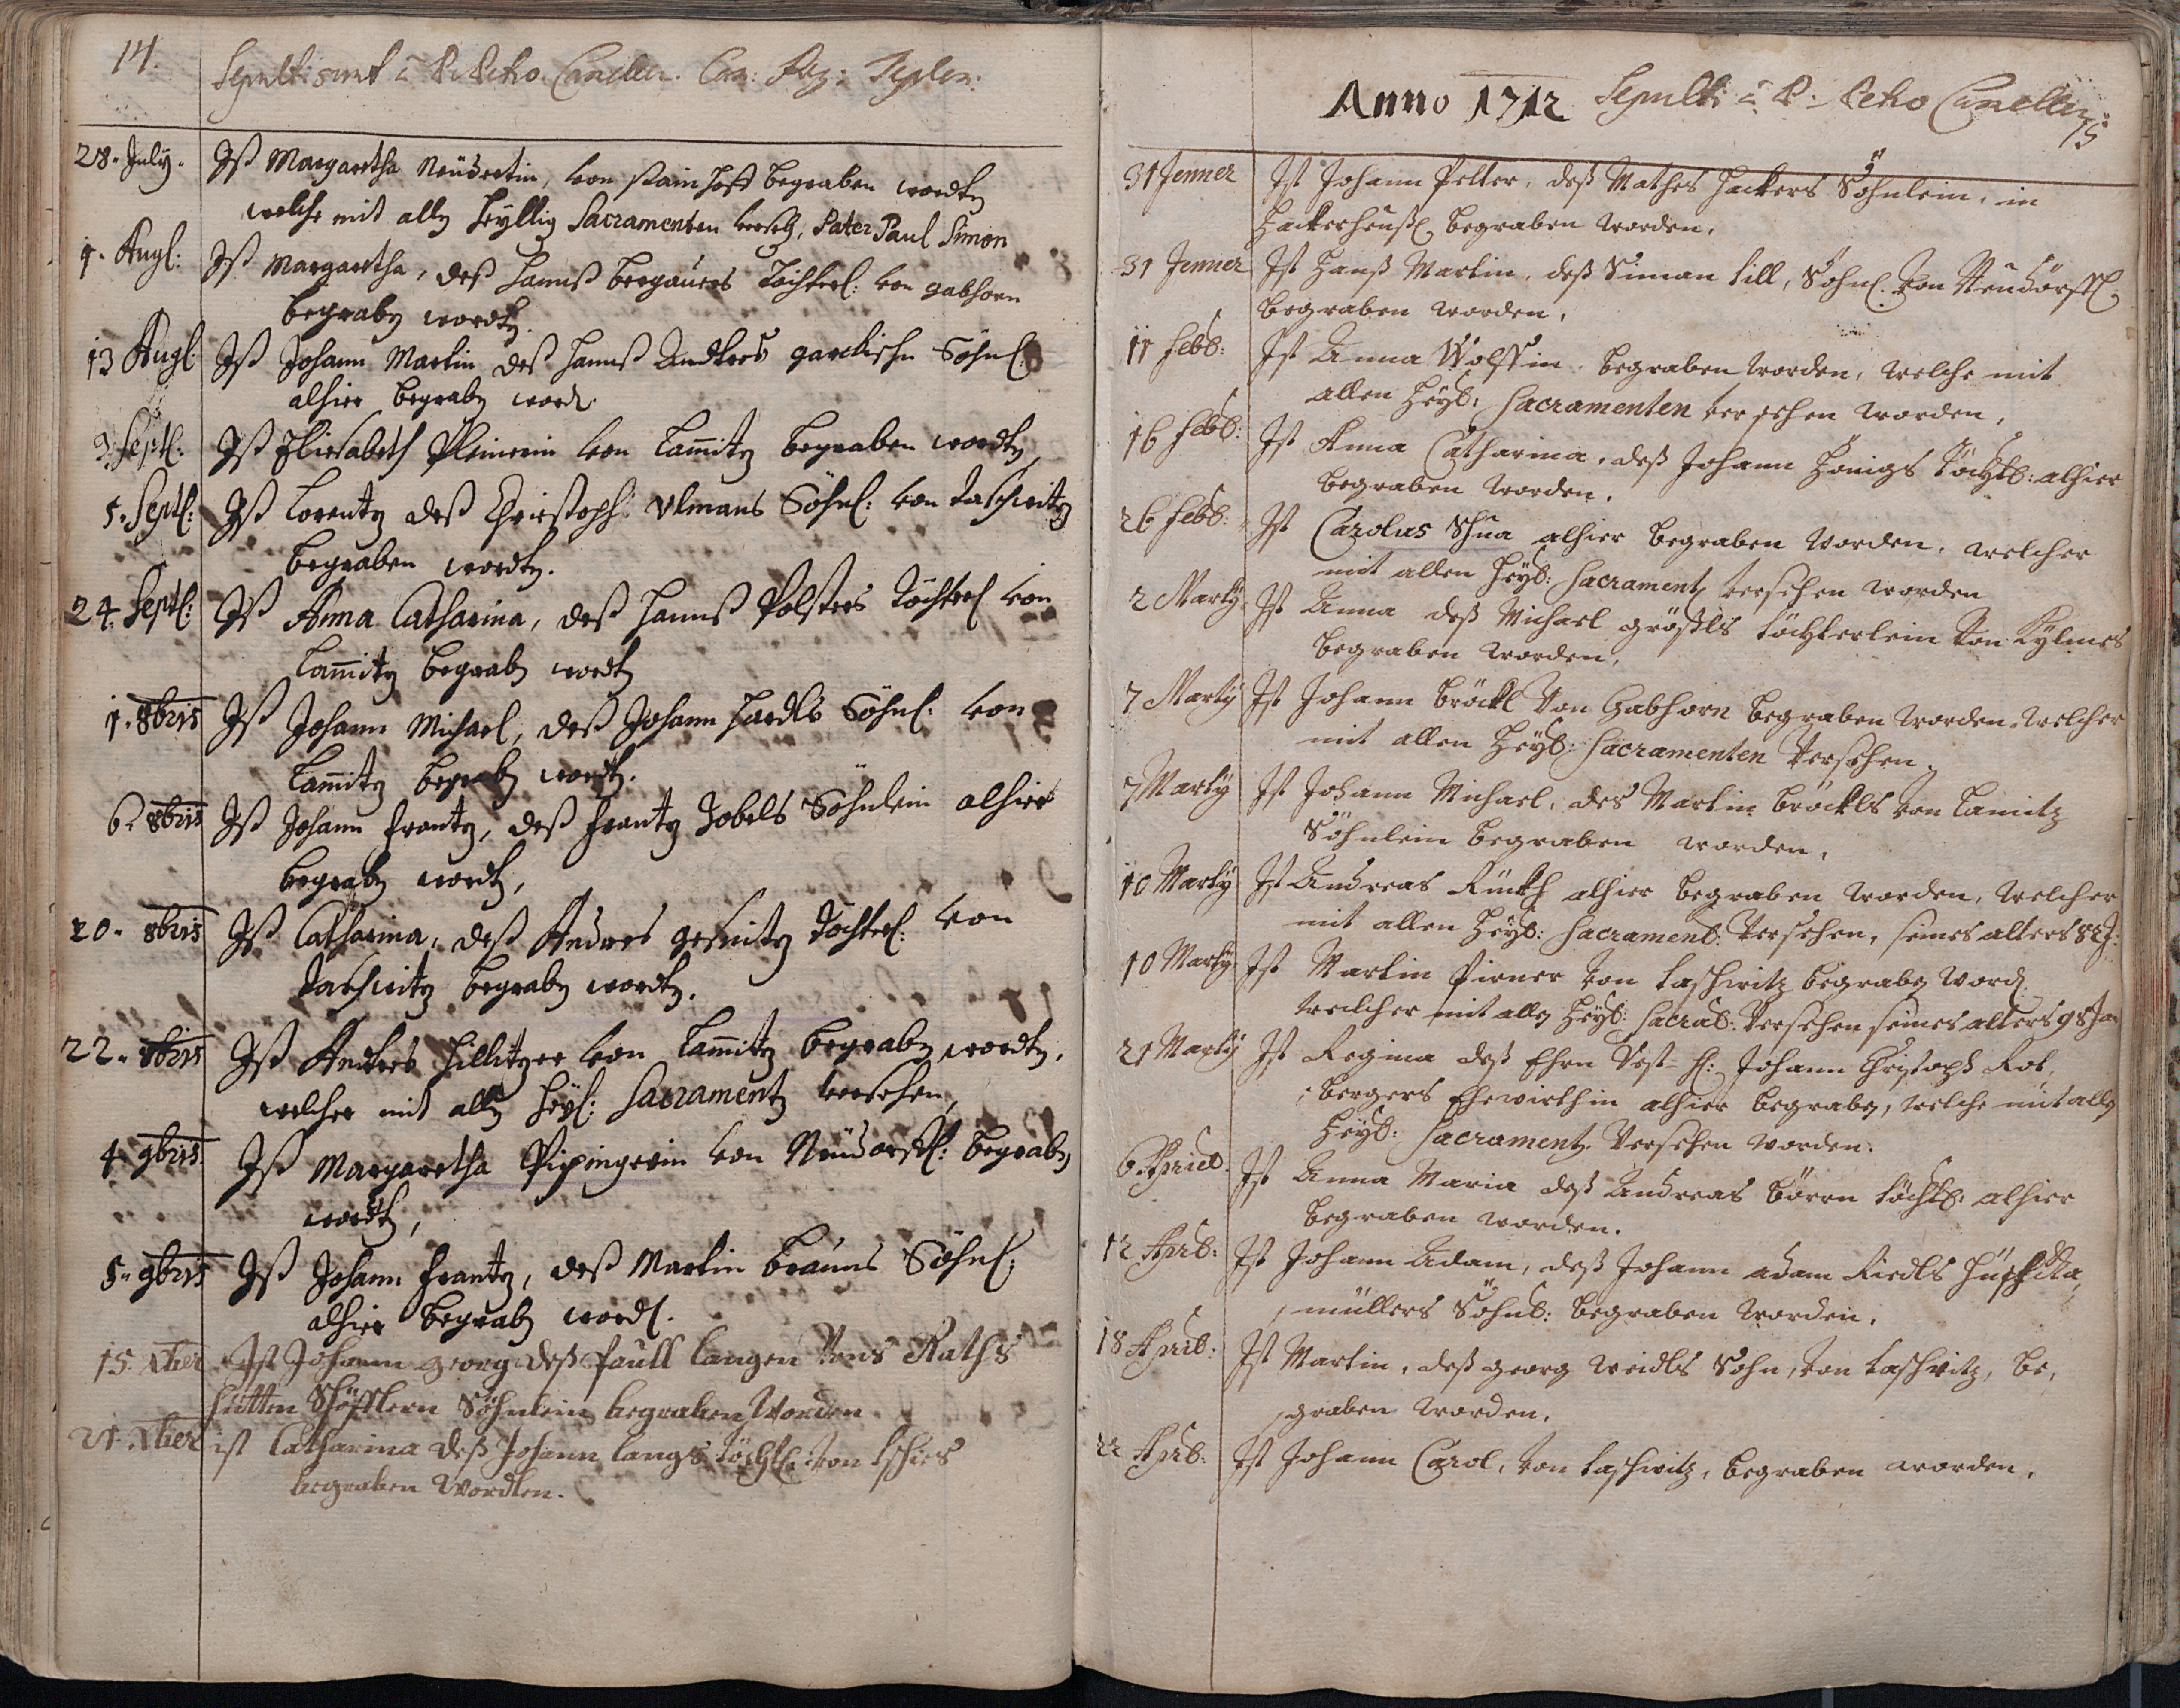 14.
Sepulti sunt à P. Petro Can: Reg: Teplen:
28. July. Ist Margaretha Neüdertin, von stain Hoff begraben wordten
welche mit allen heyllig Sacramenten verseh, Pater Paul Simon
9. Aug: Ist Margaretha, deß Hannß bergauers Töchterl: von gabhorn
begraben wordten.
13 Aug: Ist Johann Martin deß Hannß Söhnl:
alhier begraben word.
3. Septl: Ist Elisabeth von Lam̄itz begraben wordten,
5. Septl: Ist Lorentz deß Christoph Ulmans Söhnl: von taschwitz
begraben wordten.
24. Septl: Ist Anna Catharina, deß Hannß Polsters Töchterl von
Lam̄itz begraben wordten
1. 8bris Ist Johann Michael, deß Johann Hardls Söhnl: von
Lam̄itz begraben wordten.
6. 8bris Ist Johann Frantz, deß Frantz Zobels Söhnlein alhier
begraben wordten,
20. 8bris Ist Catharina, deß Andres Töchterl: von
Taschwitz begraben wordten.
22. 8bris Ist Andres Hillitzer von Lam̄itz begraben wordten,
welcher mit allen Heyl: Sacramenten versehen,
4. 9bris. Ist Margaretha Pipingerin von Neüdorffl: begraben
wordten,
5. 9bris Ist Johann Frantz, deß Martin brauns Söhnl:
alhier begraben wordl.
15. Xber Ist Johann georg deß Paull langen Raths
Söhnlein begraben Worden
21. Xber ist Catharina deß Johann langs töchtl: von tschies
begraben Wordten.
Anno 1712 Sepulti à P: Petro
15
31 Jenner Ist Johann Petter, deß Mathes Hackers Söhnlein, in
Hackerheußl begraben worden.
31 Jenner Ist Hanß Martin, deß Siman till, Söhnl. von Neudörffl
begraben worden,
11 Febr: Ist Anna Wolffin begraben worden, welche mit
allen Heyl: Sacramenten versehen worden,
16 Febr: Ist Anna Catharina, deß Johann Honigs töchtl: alhier
begraben worden.
26 Febr: Ist Carolus Schua alhier begraben worden, welcher
mit allen Heyl: Sacrament versehen worden
2 Marty Ist Anna deß Michael größls töchterlein von
begraben worden,
7 Marty Ist Johann bröckl von Gabhorn begraben worden, welcher
mit allen Heyl: Sacramenten versehen.
7 Marty Ist Johann Michael, des Martin bröckls von Lamitz
Söhnlein begraben worden.
10 Marty Ist Andreas alhier begraben worden, welcher
mit allen Heyl: Sacrament: versehen, seines alters 82 J:
10 Marty Ist Martin Pirner von taschwitz begraben word.
welcher mit allen Heyl: Sacra: versehen seines alters 98 Jar
21 Marty Ist Regina deß Ehrn Vest- H: Johann Christoph Rot,
bergers Ehewirthin alhier begraben, welche mit allen
Heyl: Sacramenten versehen worden.
6 Aprill: Ist Anna Maria deß Andreas töchtl: alhier
begraben worden.
12 Apill: Ist Johann Adam, deß Johann adam Riedls
müllers Söhnl: begraben worden,
18 April: Ist Martin, deß georg weidls Sohn, von taschwitz, be,
graben worden.
22 Apl: Ist Johann Carol, von taschwitz, begraben worden,